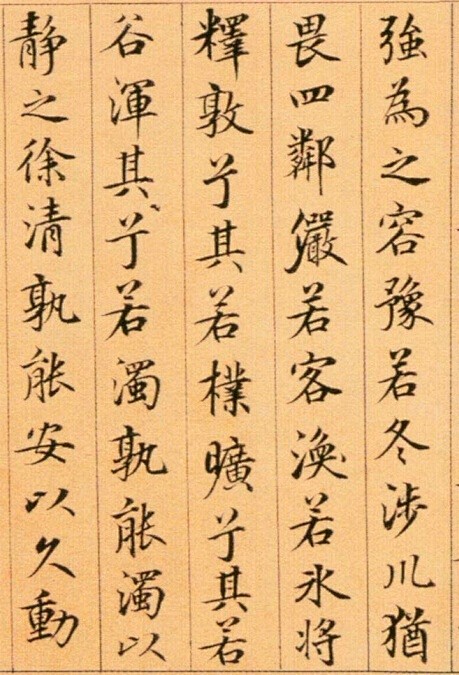 強為之容豫若冬涉川猶
畏四鄰儼若客渙若氷將
釋敦兮其若樸曠兮其若
谷渾其兮若濁孰能濁以
靜之徐清孰能安以久動